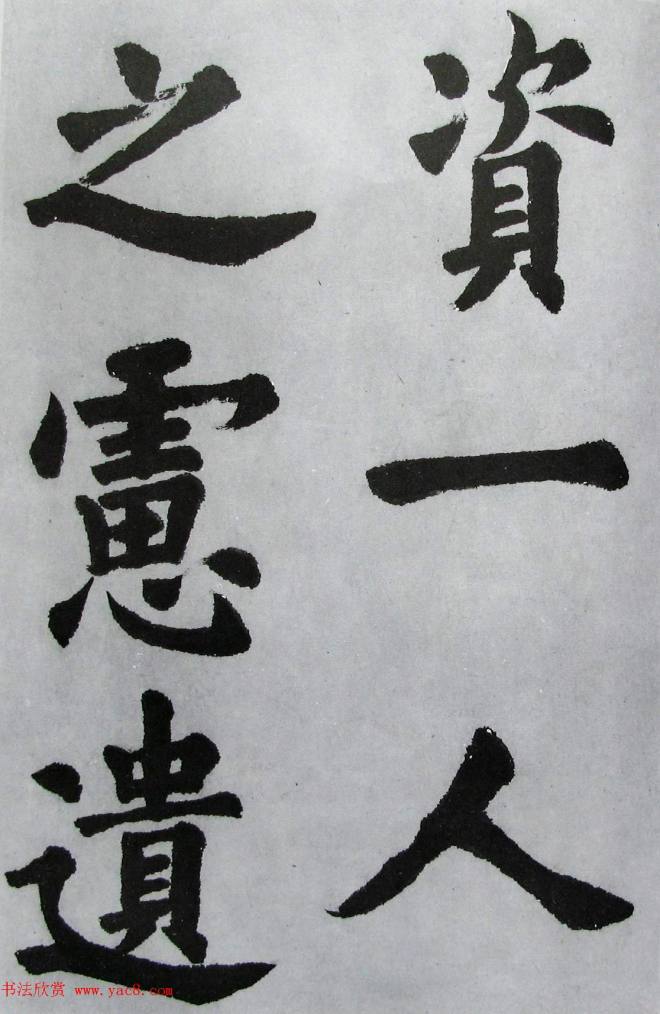 資一人
之憲遺
书法欣赏 www.yac8.com